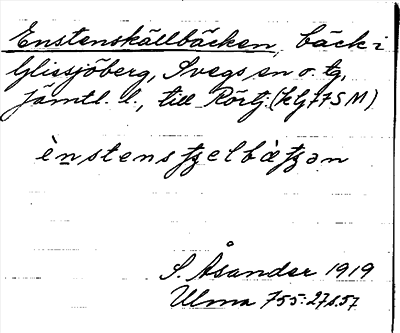 Enstenskällbäcken, bäck i
Glissjöberg, Svegs sn o. tg,
Jämtl. l., till Rörtj. (klj 77 SM)
ènstensꞔelbæ̀ꞔən
S. Åsander 1919
Ulma 755:27 s.57